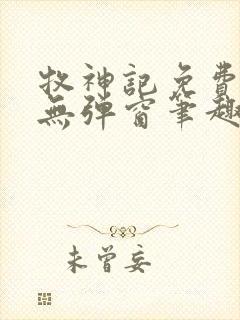 牧神記免費
無彈窗筆趣
未曾妄